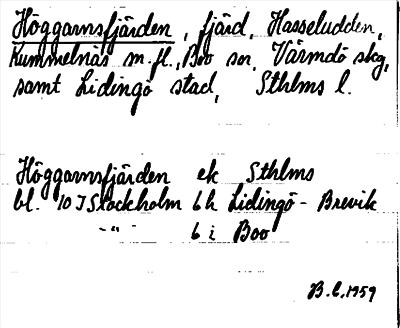 Höggarnsfjärden, fjärd, Hasseludden,
Kummelnäs m.fl., Boo sn, Värmdö skg,
samt Lidingö stad, Sthlms l.
Höggarnsfjärden ek Sthlms
bl. 10 I Stockholm 6 h Lidingö - Brevik
- " - 6 i Boo
B.C. 1959